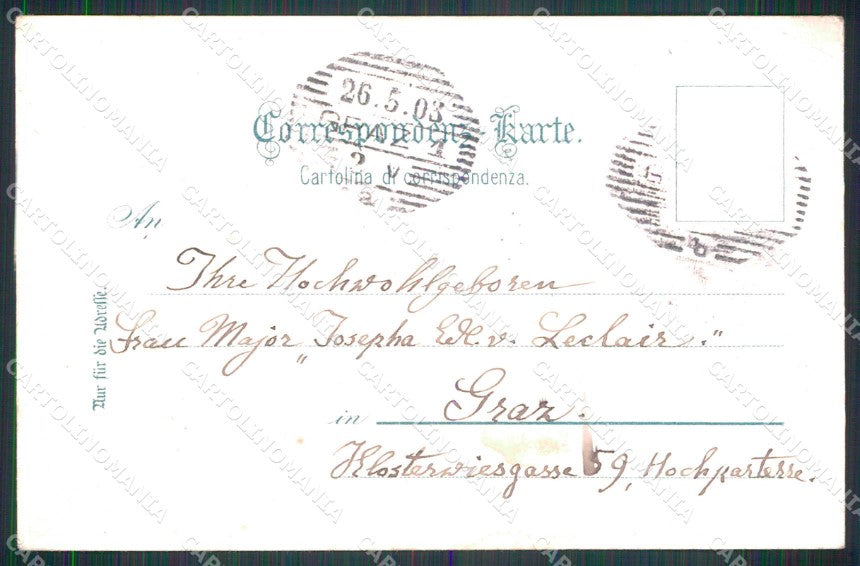 26.5.03
Correspondenz-Karte.
Cartolina di corrispondenza.
An
Ihre Hochwohlgeboren
Frau Major „Josepha Edl. v. Leclair."
in Graz.
Klosterwiesgasse 59, Hochparterre.
Nur für die Adresse.
CARTOLINOMANIA